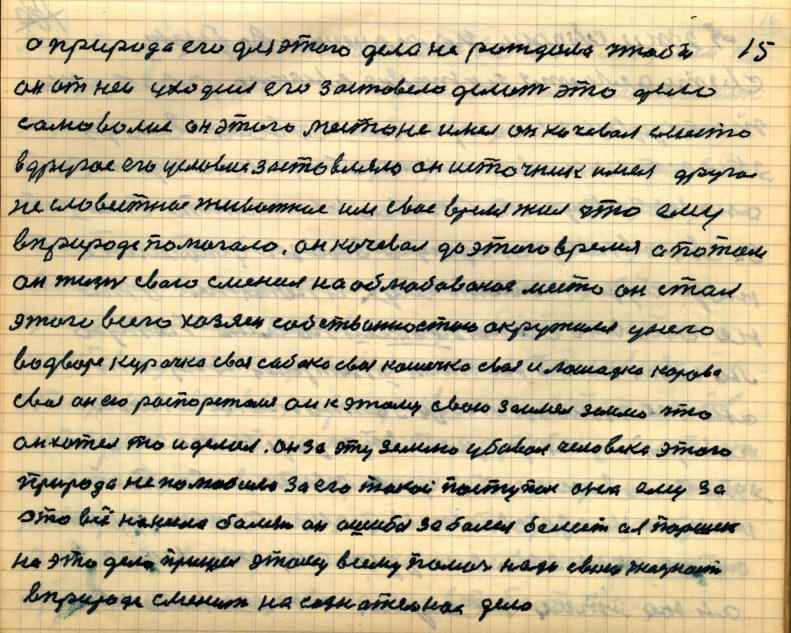 а природа его для этого дела не рождала чтобы 15
он от неи уходил его заставело делат это дело
самоволие он этого место не имел он кочевал с место
в другое его условие заставляло он источник имел другое
не словестное животное им свое время жил что ему
в природе помогало. он кочевал до этого время а потом
он жизн свого сменил на облюбованое место он стал
этого всего хозяен собствинностью окружился у него
во дворе курачка своя собака своя кошечка своя и лошадка корова
своя он ею распоретался он к этому свою заимел землю что
он хотел то и делал. он за эту землю убивал человека этого
природа не полюбила за его такой поступок она ему за
это всё нанила балезн он ошибся забалел балеет а я Паршек
на это дела пришел этому всему помоч надо свою жадност
в природе сменит на сознателное дело